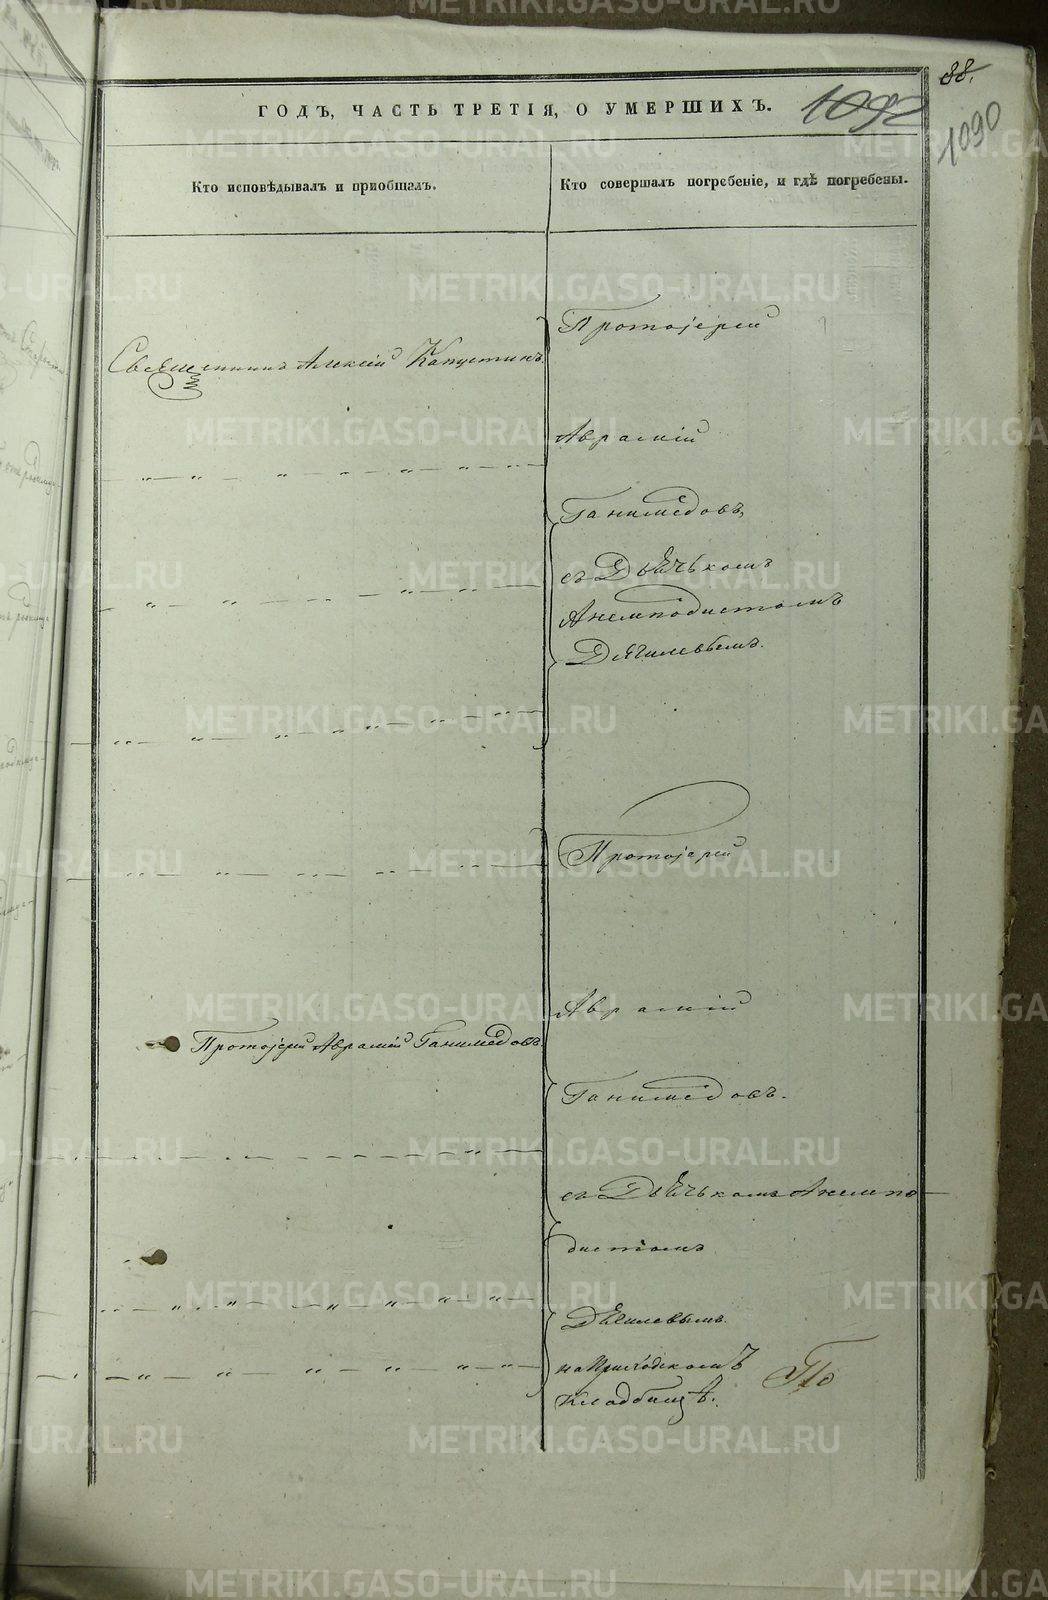 88.
ГОДЪ, ЧАСТЬ ТРЕТІЯ, О УМЕРШИХЪ.
1092
1090
Кто исповѣдывалъ и пріобщалъ.
Кто совершалъ погребеніе, и гдѣ погребены.
Священникъ Алексій Капустинъ
Протоіерей
Аврамій
Ганимедовъ
съ Дьячькомъ
Анемподистомъ
Дягилевымъ.
Протоіерей
Аврамій
Протоіерей Аврамій Ганимедовъ
Ганимедовъ.
съ Дьячькомъ Анемпо-
дистомъ
Дягилевымъ.
на Приходскомъ
Кладбищѣ.
METRIKI.GASO-URAL.RU